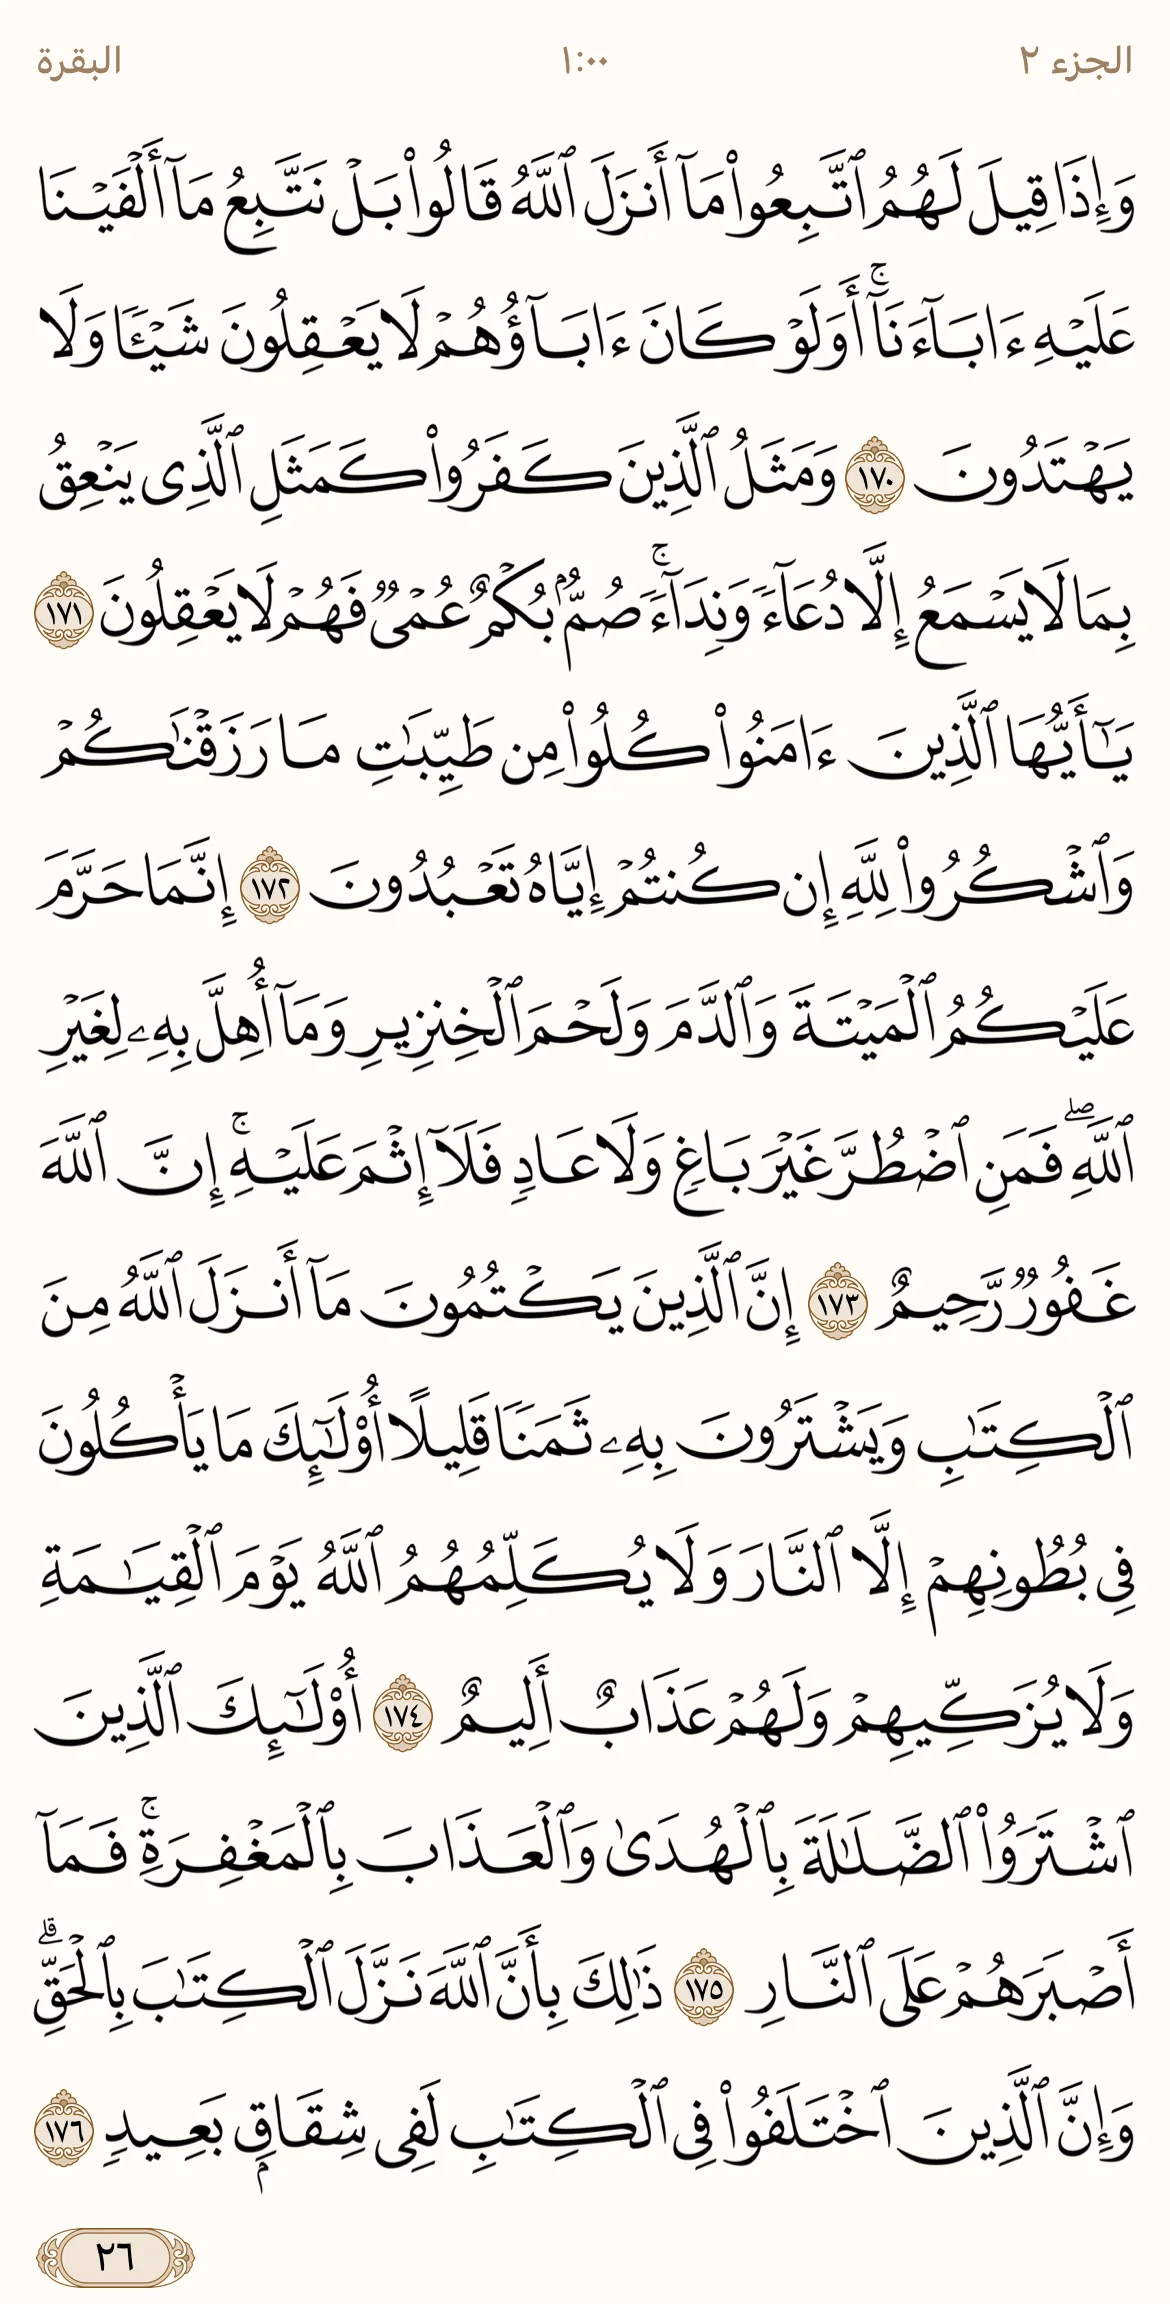 الجزء ٢
١:٠٠
البقرة
وَإِذَا قِيلَ لَهُمُ ٱتَّبِعُوا۟ مَآ أَنزَلَ ٱللَّهُ قَالُوا۟ بَلْ نَتَّبِعُ مَآ أَلْفَيْنَا
عَلَيْهِ ءَابَآءَنَآ ۚ أَوَلَوْ كَانَ ءَابَآؤُهُمْ لَا يَعْقِلُونَ شَيْـًٔا وَلَا
يَهْتَدُونَ ١٧٠ وَمَثَلُ ٱلَّذِينَ كَفَرُوا۟ كَمَثَلِ ٱلَّذِى يَنْعِقُ
بِمَا لَا يَسْمَعُ إِلَّا دُعَآءً وَنِدَآءً ۚ صُمٌّۢ بُكْمٌ عُمْىٌ فَهُمْ لَا يَعْقِلُونَ ١٧١
يَـٰٓأَيُّهَا ٱلَّذِينَ ءَامَنُوا۟ كُلُوا۟ مِن طَيِّبَـٰتِ مَا رَزَقْنَـٰكُمْ
وَٱشْكُرُوا۟ لِلَّهِ إِن كُنتُمْ إِيَّاهُ تَعْبُدُونَ ١٧٢ إِنَّمَا حَرَّمَ
عَلَيْكُمُ ٱلْمَيْتَةَ وَٱلدَّمَ وَلَحْمَ ٱلْخِنزِيرِ وَمَآ أُهِلَّ بِهِۦ لِغَيْرِ
ٱللَّهِ ۖ فَمَنِ ٱضْطُرَّ غَيْرَ بَاغٍ وَلَا عَادٍ فَلَآ إِثْمَ عَلَيْهِ ۚ إِنَّ ٱللَّهَ
غَفُورٌ رَّحِيمٌ ١٧٣ إِنَّ ٱلَّذِينَ يَكْتُمُونَ مَآ أَنزَلَ ٱللَّهُ مِنَ
ٱلْكِتَـٰبِ وَيَشْتَرُونَ بِهِۦ ثَمَنًا قَلِيلًا أُو۟لَـٰٓئِكَ مَا يَأْكُلُونَ
فِى بُطُونِهِمْ إِلَّا ٱلنَّارَ وَلَا يُكَلِّمُهُمُ ٱللَّهُ يَوْمَ ٱلْقِيَـٰمَةِ
وَلَا يُزَكِّيهِمْ وَلَهُمْ عَذَابٌ أَلِيمٌ ١٧٤ أُو۟لَـٰٓئِكَ ٱلَّذِينَ
ٱشْتَرَوُا۟ ٱلضَّلَـٰلَةَ بِٱلْهُدَىٰ وَٱلْعَذَابَ بِٱلْمَغْفِرَةِ ۚ فَمَآ
أَصْبَرَهُمْ عَلَى ٱلنَّارِ ١٧٥ ذَٰلِكَ بِأَنَّ ٱللَّهَ نَزَّلَ ٱلْكِتَـٰبَ بِٱلْحَقِّ ۗ
وَإِنَّ ٱلَّذِينَ ٱخْتَلَفُوا۟ فِى ٱلْكِتَـٰبِ لَفِى شِقَاقٍۭ بَعِيدٍ ١٧٦
٢٦